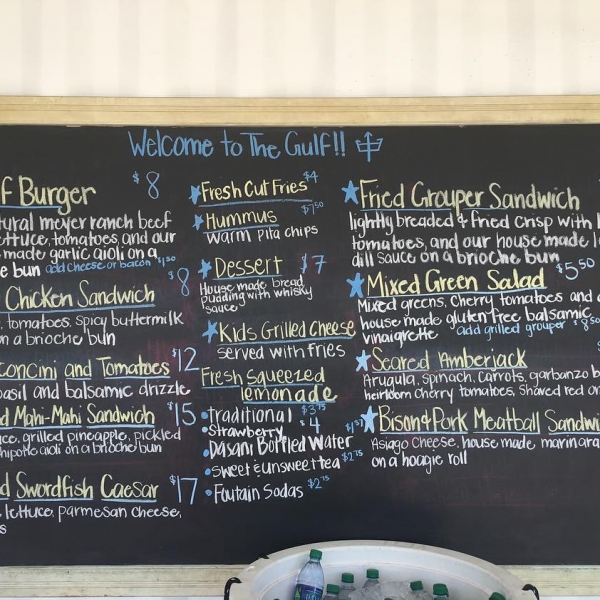 Welcome to The Gulf!!
f Burger $8
tural meyer ranch beef
ettuce, tomatoes, and our
made garlic aioli on a
e bun add cheese or bacon $1.50
Chicken Sandwich $8
, tomatoes, spicy buttermilk
n a brioche bun
concini and Tomatoes $12
basil and balsamic drizzle
d Mahi-Mahi Sandwich $15
uce, grilled pineapple, pickled
hipotle aioli on a brioche bun
d Swordfish Caesar $17
lettuce, parmesan cheese,
s
Fresh Cut Fries $4
Hummus $7.50
warm pita chips
Dessert $7
House made bread
pudding with whisky
sauce
Kids Grilled Cheese
served with fries
Fresh squeezed
lemonade
traditional $3.75
Strawberry $4
Dasani Bottled Water
sweet & unsweet tea $2.75
Foutain Sodas $2.75
Fried Grouper Sandwich
lightly breaded & fried crisp with
tomatoes, and our house made
dill sauce on a brioche bun
Mixed Green Salad $5.50
Mixed greens, cherry tomatoes and
house made gluten free balsamic
vinaigrette add grilled grouper $8.50
Seared Amberjack
Arugula, spinach, carrots, garbanzo b
heirloom cherry tomatoes, shaved red on
Bison & Pork Meatball Sandwi
Asiago cheese, house made marinara
on a hoagie roll